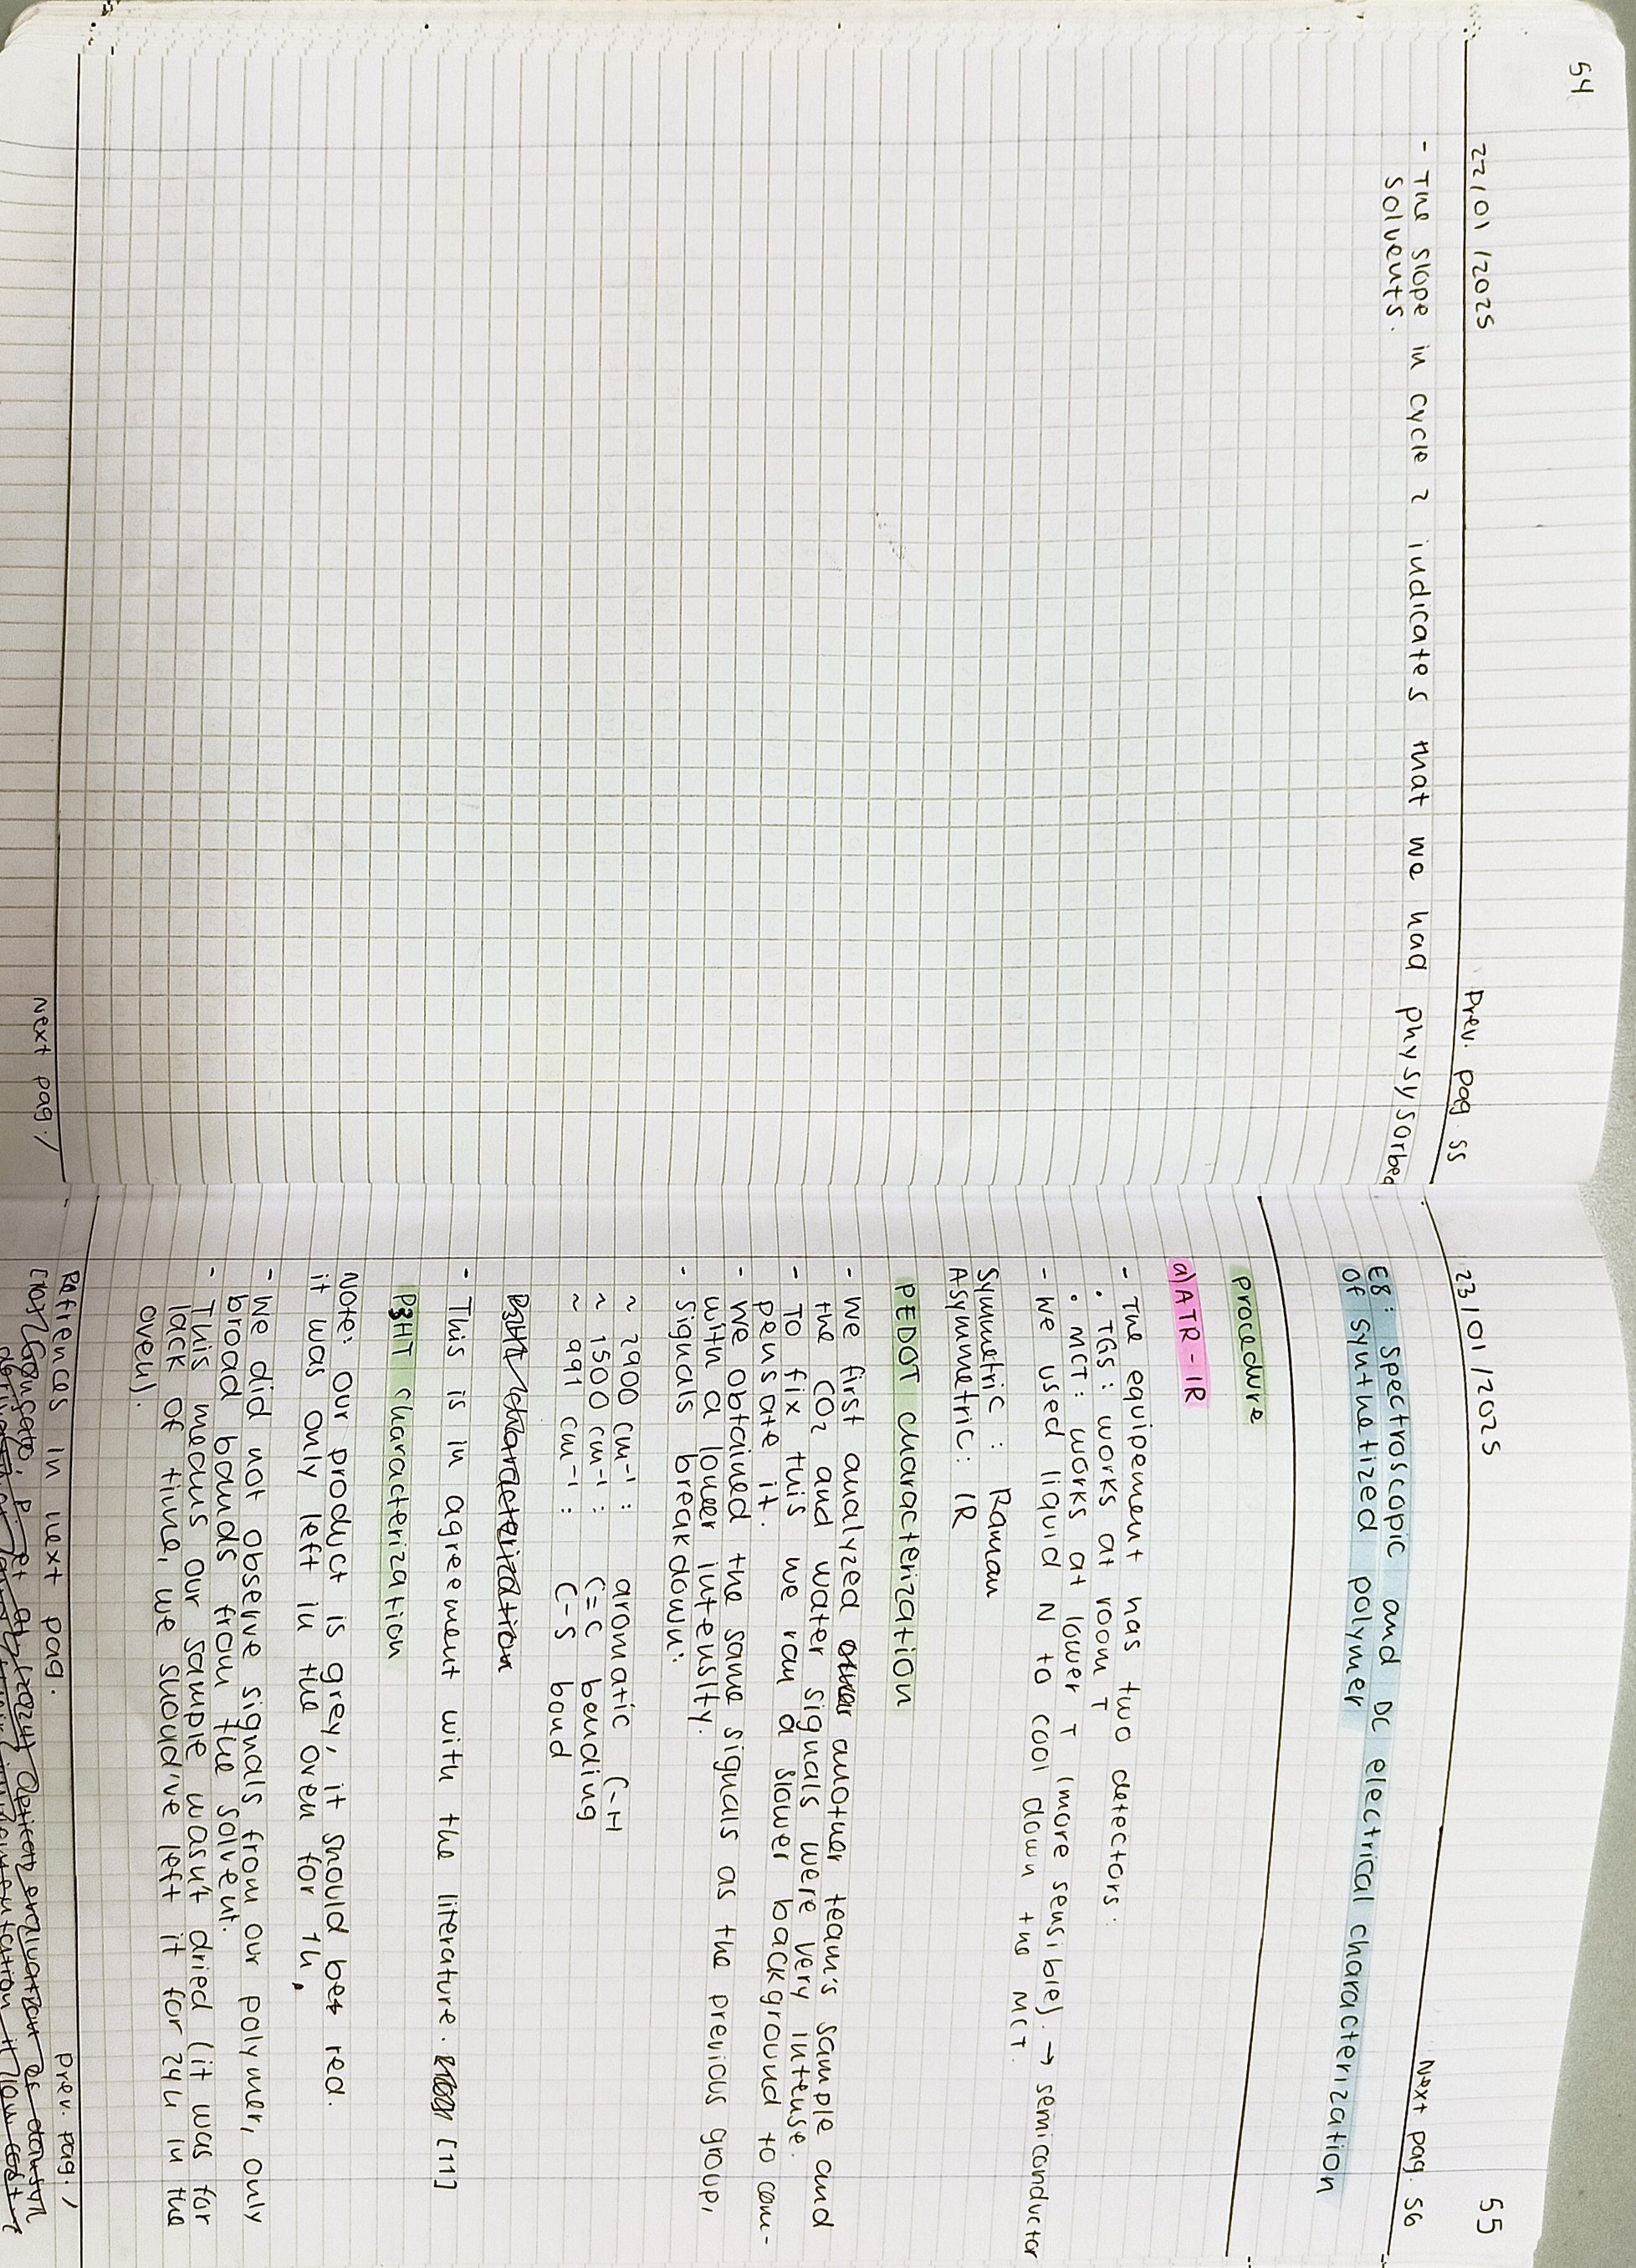 54
22/01/2025
Prev. pag. 55
- The slope in cycle 2 indicates that we had physysorbed
solvents.
Next pag. /
55
23/01/2025
Next pag. 56
E8: Spectroscopic and DC electrical characterization
of synthetized polymer
Procedure
a) ATR-IR
- The equipement has two detectors:
• TGS: works at room T
• MCT: works at lower T (more sensible). → semiconductor
- We used liquid N to cool down the MCT.
Symmetric: Raman
Asymmetric: IR
PEDOT characterization
- We first analyzed another team's sample and
the CO2 and water signals were very intense.
- To fix this we ran a slower background to com-
pensate it.
- We obtained the same signals as the previous group,
with a lower intensity.
- Signals breakdown:
~ 2900 cm-1: aromatic C-H
~ 1500 cm-1: C=C bending
~ 991 cm-1: C-S bond
P3HT characterization
- This is in agreement with the literature. [11]
P3HT characterization
Note: Our product is grey, it should be red.
it was only left in the oven for 1h.
- We did not observe signals from our polymer, only
broad bands from the solvent.
- This means our sample wasn't dried (it was for
lack of time, we should've left it for 24h in the
oven).
Refrences in next pag.
Prev. pag. /